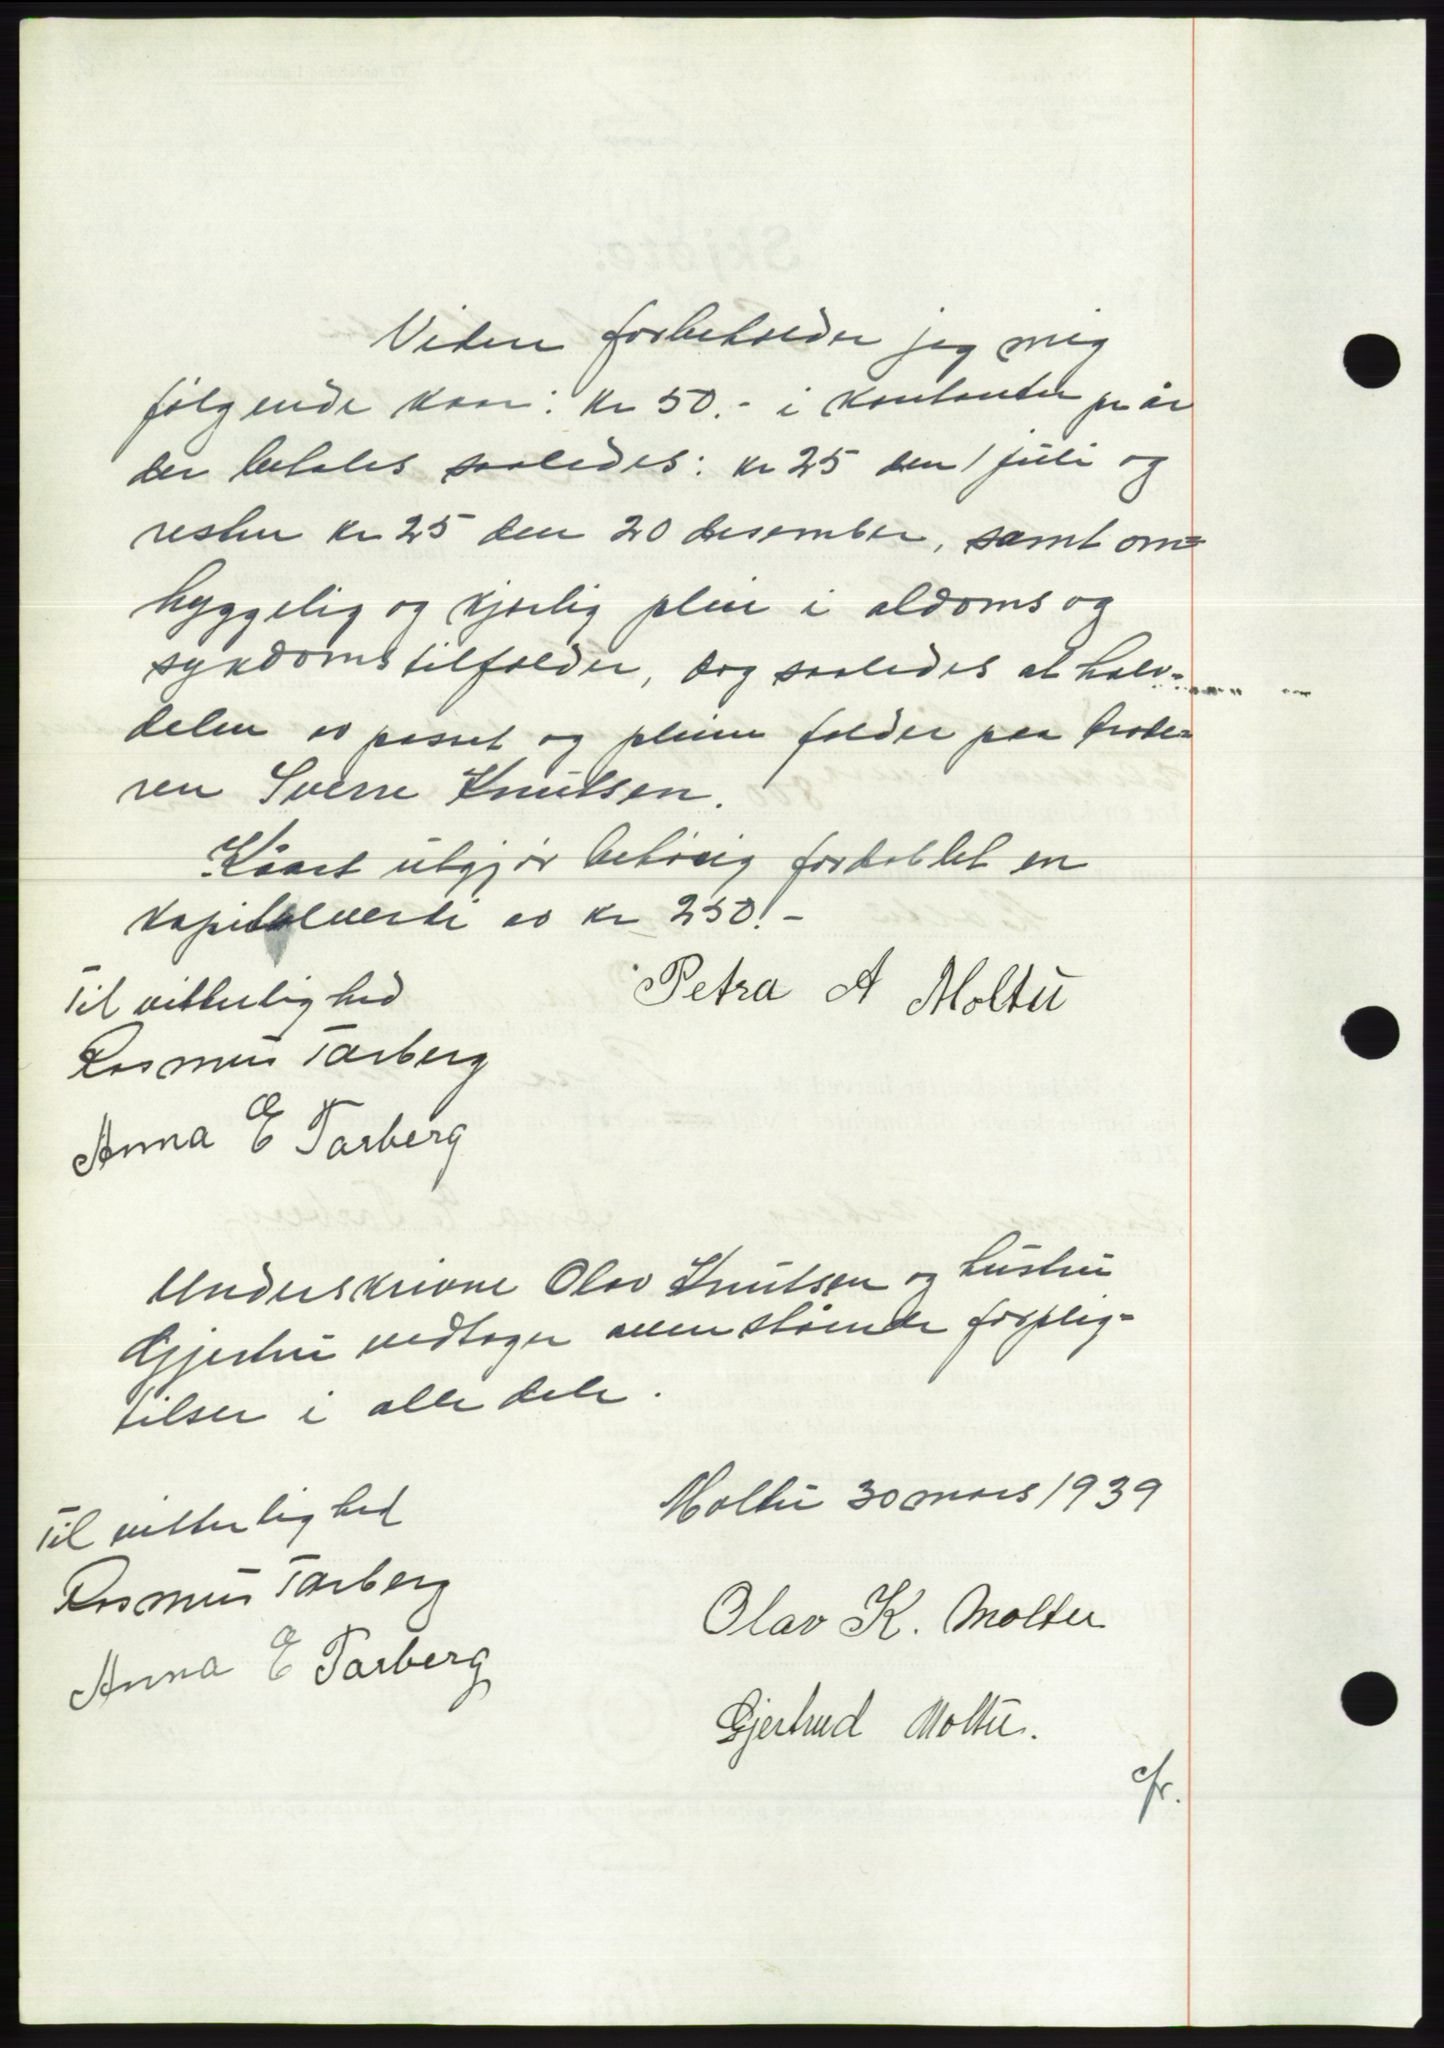 Videre forbeholder jeg mig
følgende kaar: kr 50.- i kontanter pr år
der betales saaledes: kr 25 den 1 juli og
resten kr 25 den 20 desember, samt om=
hyggelig og kjærlig pleie i aldoms og
sykdomstilfælder, dog saaledes at halv-
delen av passet og pleien falder paa brode=
ren Sverre Knutsen.
Kåret utgjør femårig fordoblet en
kapitalverdi av kr 250.-
Til vitterlighed
Petra A Moltu
Rasmus Tarberg
Anna E Tarberg
Underskrivne Olav Knutsen og hustru
Gjertru vedtager ovenstående forplig=
telser i alle dele.
Moltu 30 mars 1939
Til vitterlighed
Rasmus Tarberg
Olav K. Moltu
Anna E Tarberg
Gjertrud Moltu.
cfr.